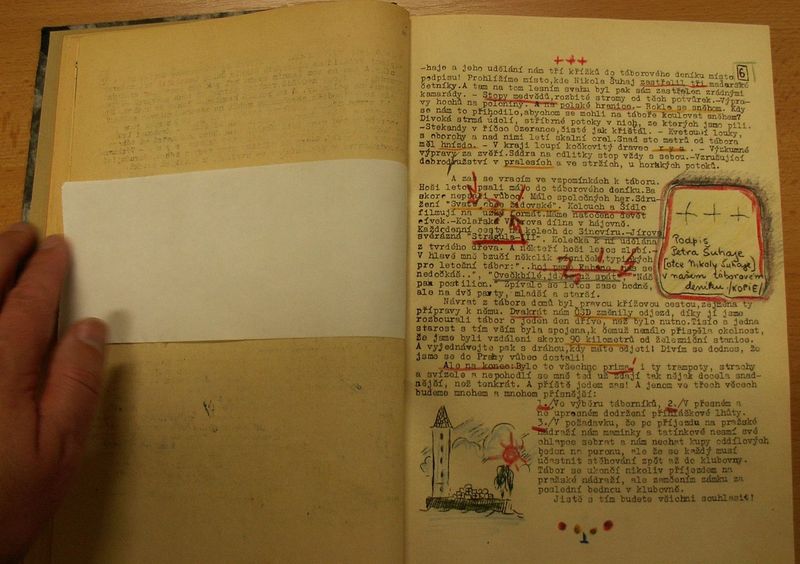 +++
6
-haje a jeho udělání nám tří křížků do táborového deníku místo
podpisu! Prohlížíme místo,kde Nikola Šuhaj zastřelil tři maďarské
četníky.A tam na tom lesním svahu byl pak sám zastřelen zrádnými
kamarády. - Stopy medvědů,rozbité stromy od těch potvůrek.-Výpra-
vy hochů na poloniny. A na polské hranice.- Rokle se sněhem. Kdy
se nám to přihodilo,abychom se mohli na táboře koulovat sněhem?
Divoká strmá údolí, stříbrné potoky v nich, ze kterých jsme pili.
-Stekandy v říčce Ozerance,čisté jak křišťál. - Kvetoucí louky.
s oborohy a nad nimi letí skalní orel.Snad sto metrů od tábora
měl hnízdo. - V kraji loupí kočkovitý dravec r y s . - Výzkumné
výpravy za zvěří.Sádra na odlitky stop vždy s sebou.-Vzrušující
dobrodružství v pralesích a ve stržích, u horských potoků.
A zas se vracím ve vzpomínkách k táboru.
Hoši letos psali málo do táborového deníku.Ba
skoro nepsali vůbec. Málo společných her.Sdru-
žení "Svaté obce židovské". Kolouch a Šídlo
filmují na úzký formát.Máme natočeno devět
cívek.-Kolářská Vůrova dílna v hájovně.
Každodenní cesty na kolech do Sinevíru.-Jírova
svérázná "Stragula III". Kolečka k ní udělána
z tvrdého dřeva. A někteří hoši letos zlobí.-
V hlavě mně bzučí několik písniček,typických
pro letošní tábor: se
nedočkáš..", "Ovečkbílé,jděte zpátky "Náš
pan postilion. Zpívalo se letos zase hodně,
ale na dvě party, mladší a starší.
Návrat z tábora domů byl pravou křížovou cestou,zejména ty
přípravy k němu. Dvakrát nám ČSD změnily odjezd, díky jí jsme
rozbourali tábor o jeden den dříve, než bylo nutno.Tisíc a jedna
starost s tím vším byla spojena,k čemuž nemálo přispěla okolnost,
že jsme byli vzdáleni skoro 90 kilometrů od železniční stanice.
A vyjednávejte pak s dráhou,kdy máte odjeti! Divím se dodnes, že
jsme se do Prahy vůbec dostali!
Ale na konec:Bylo to všechno prima, i ty trampoty, strachy
a svízele a nepohodlí se mně teď už zdají tak nějak docela snad-
nější, než tenkrát. A příště jedem zas! A jenom ve třech věcech
budeme mnohem a mnohem přísnější:
1./Ve výběru táborníků, 2./V přesném a
ne upresném dodržení přihláškové lhůty.
3./V požadavku, že po příjezdu na pražské
nádraží nám maminky a tatínkové nesmí své
chlapce sebrat a nám nechat kupy oddílových
beden na peronu, ale že se každý musí
účastnit stěhování zpět až do klubovny.
Tábor se ukončí nikoliv příjezdem na
pražské nádraží, ale zamčením zámku za
poslední bednou v klubovně.
Jistě s tím budete všichni souhlasit!
+++
Podpis
Petra Šuhaje
(otce Nikoly Šuhaje)
v našem táborovém
deníku /KOPIE/